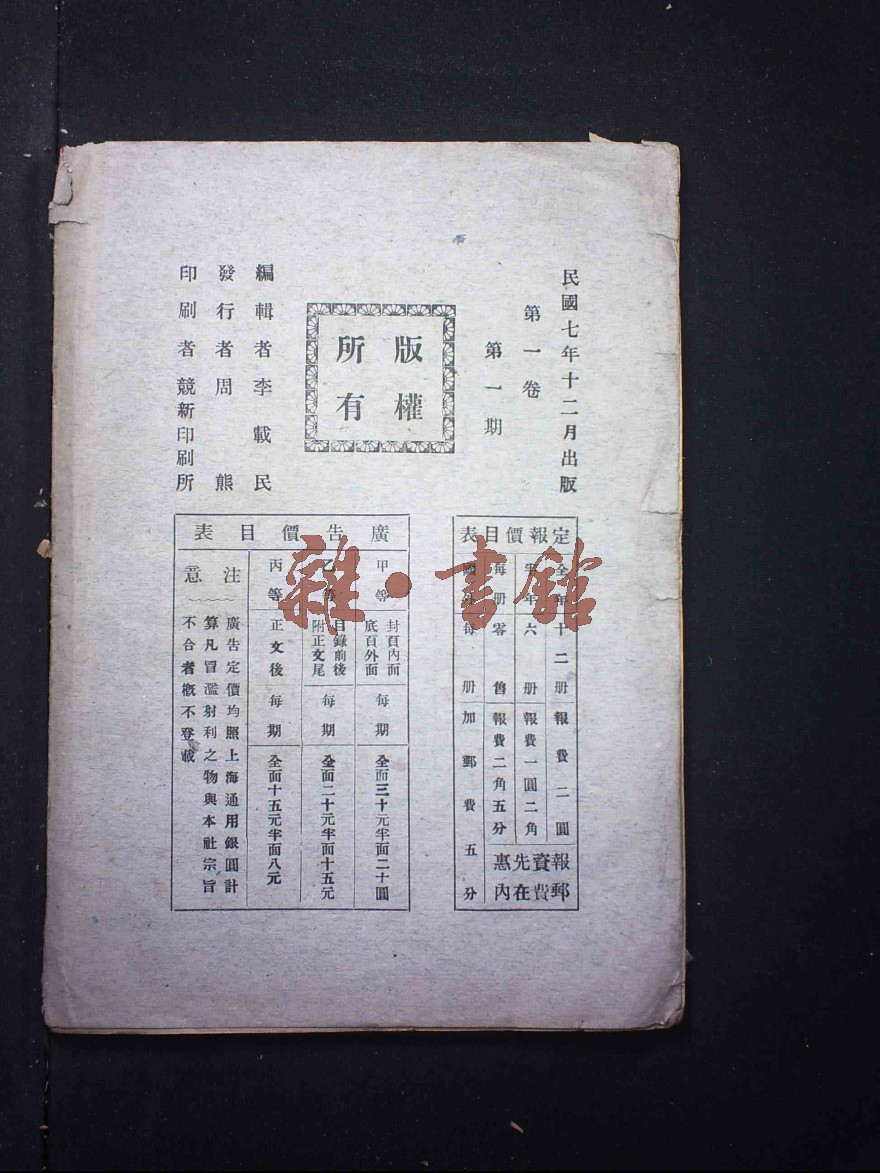 民國七年十二月出版
第一卷
第一期
版權
所有
編輯者李載民
發行者周熊
印刷者競新印刷所
定報價目表
全年十二册報費二圓
半年六册報費一圓二角
每册零售報費二角五分
國外每册加郵費五分
報資先惠
郵費在內
廣告價目表
甲等
封頁內面
底頁外面
每期
全面三十元半面二十圓
乙等
目錄前後
附正文尾
每期
全面二十元半面十五元
丙等
正文後
每期
全面十五元半面八元
注意
廣告定價均照上海通用銀圓計
算凡冒濫射利之物與本社宗旨
不合者概不登載
雜·書館